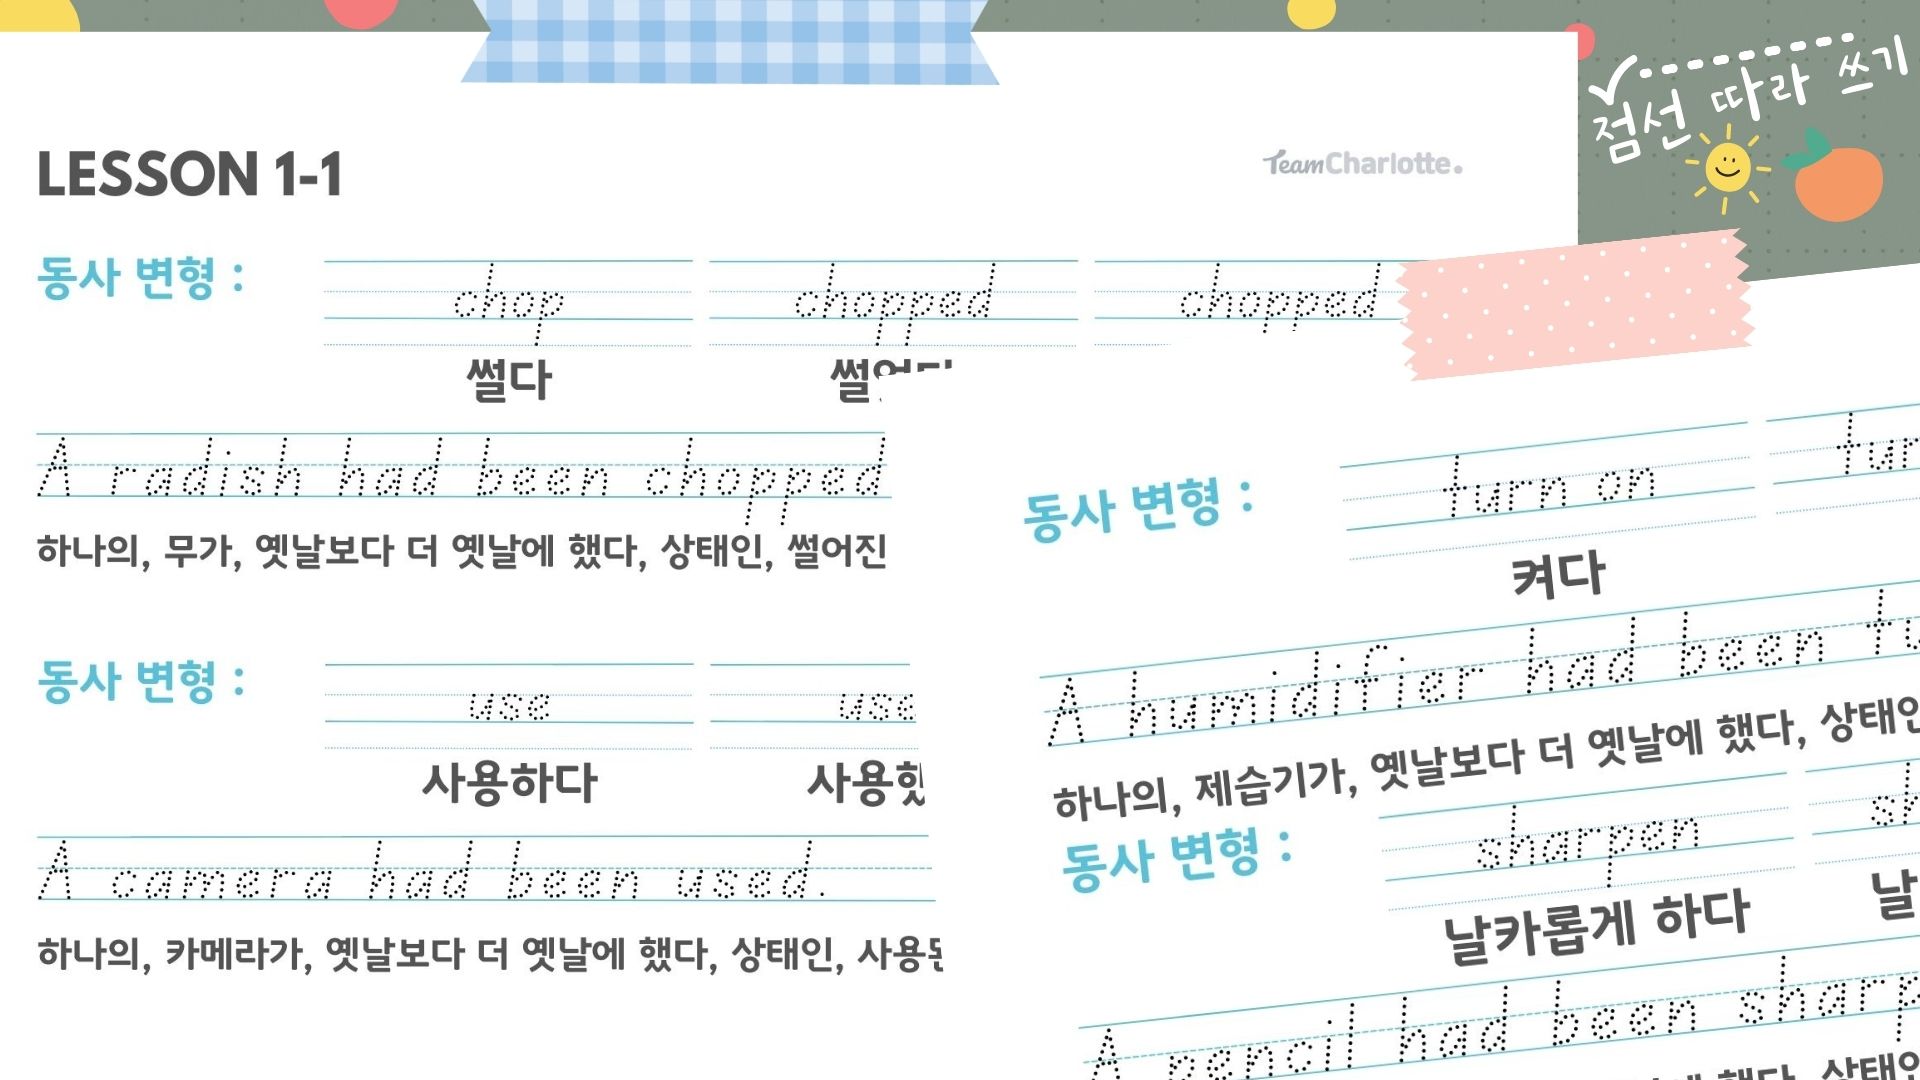 점선 따라 쓰기
LESSON 1-1
TeamCharlotte.
동사 변형 :
chop chopped chopped
썰다
A radish had been chopped
하나의, 무가, 옛날보다 더 옛날에 했다, 상태인, 썰어진
동사 변형 :
use
사용하다
A camera had been used.
하나의, 카메라가, 옛날보다 더 옛날에 했다, 상태인,
동사 변형 :
turn on
켜다
A humidifier had been
하나의, 제습기가, 옛날보다 더 옛날에 했다,
동사 변형 :
sharpen
날카롭게 하다
A pencil had been